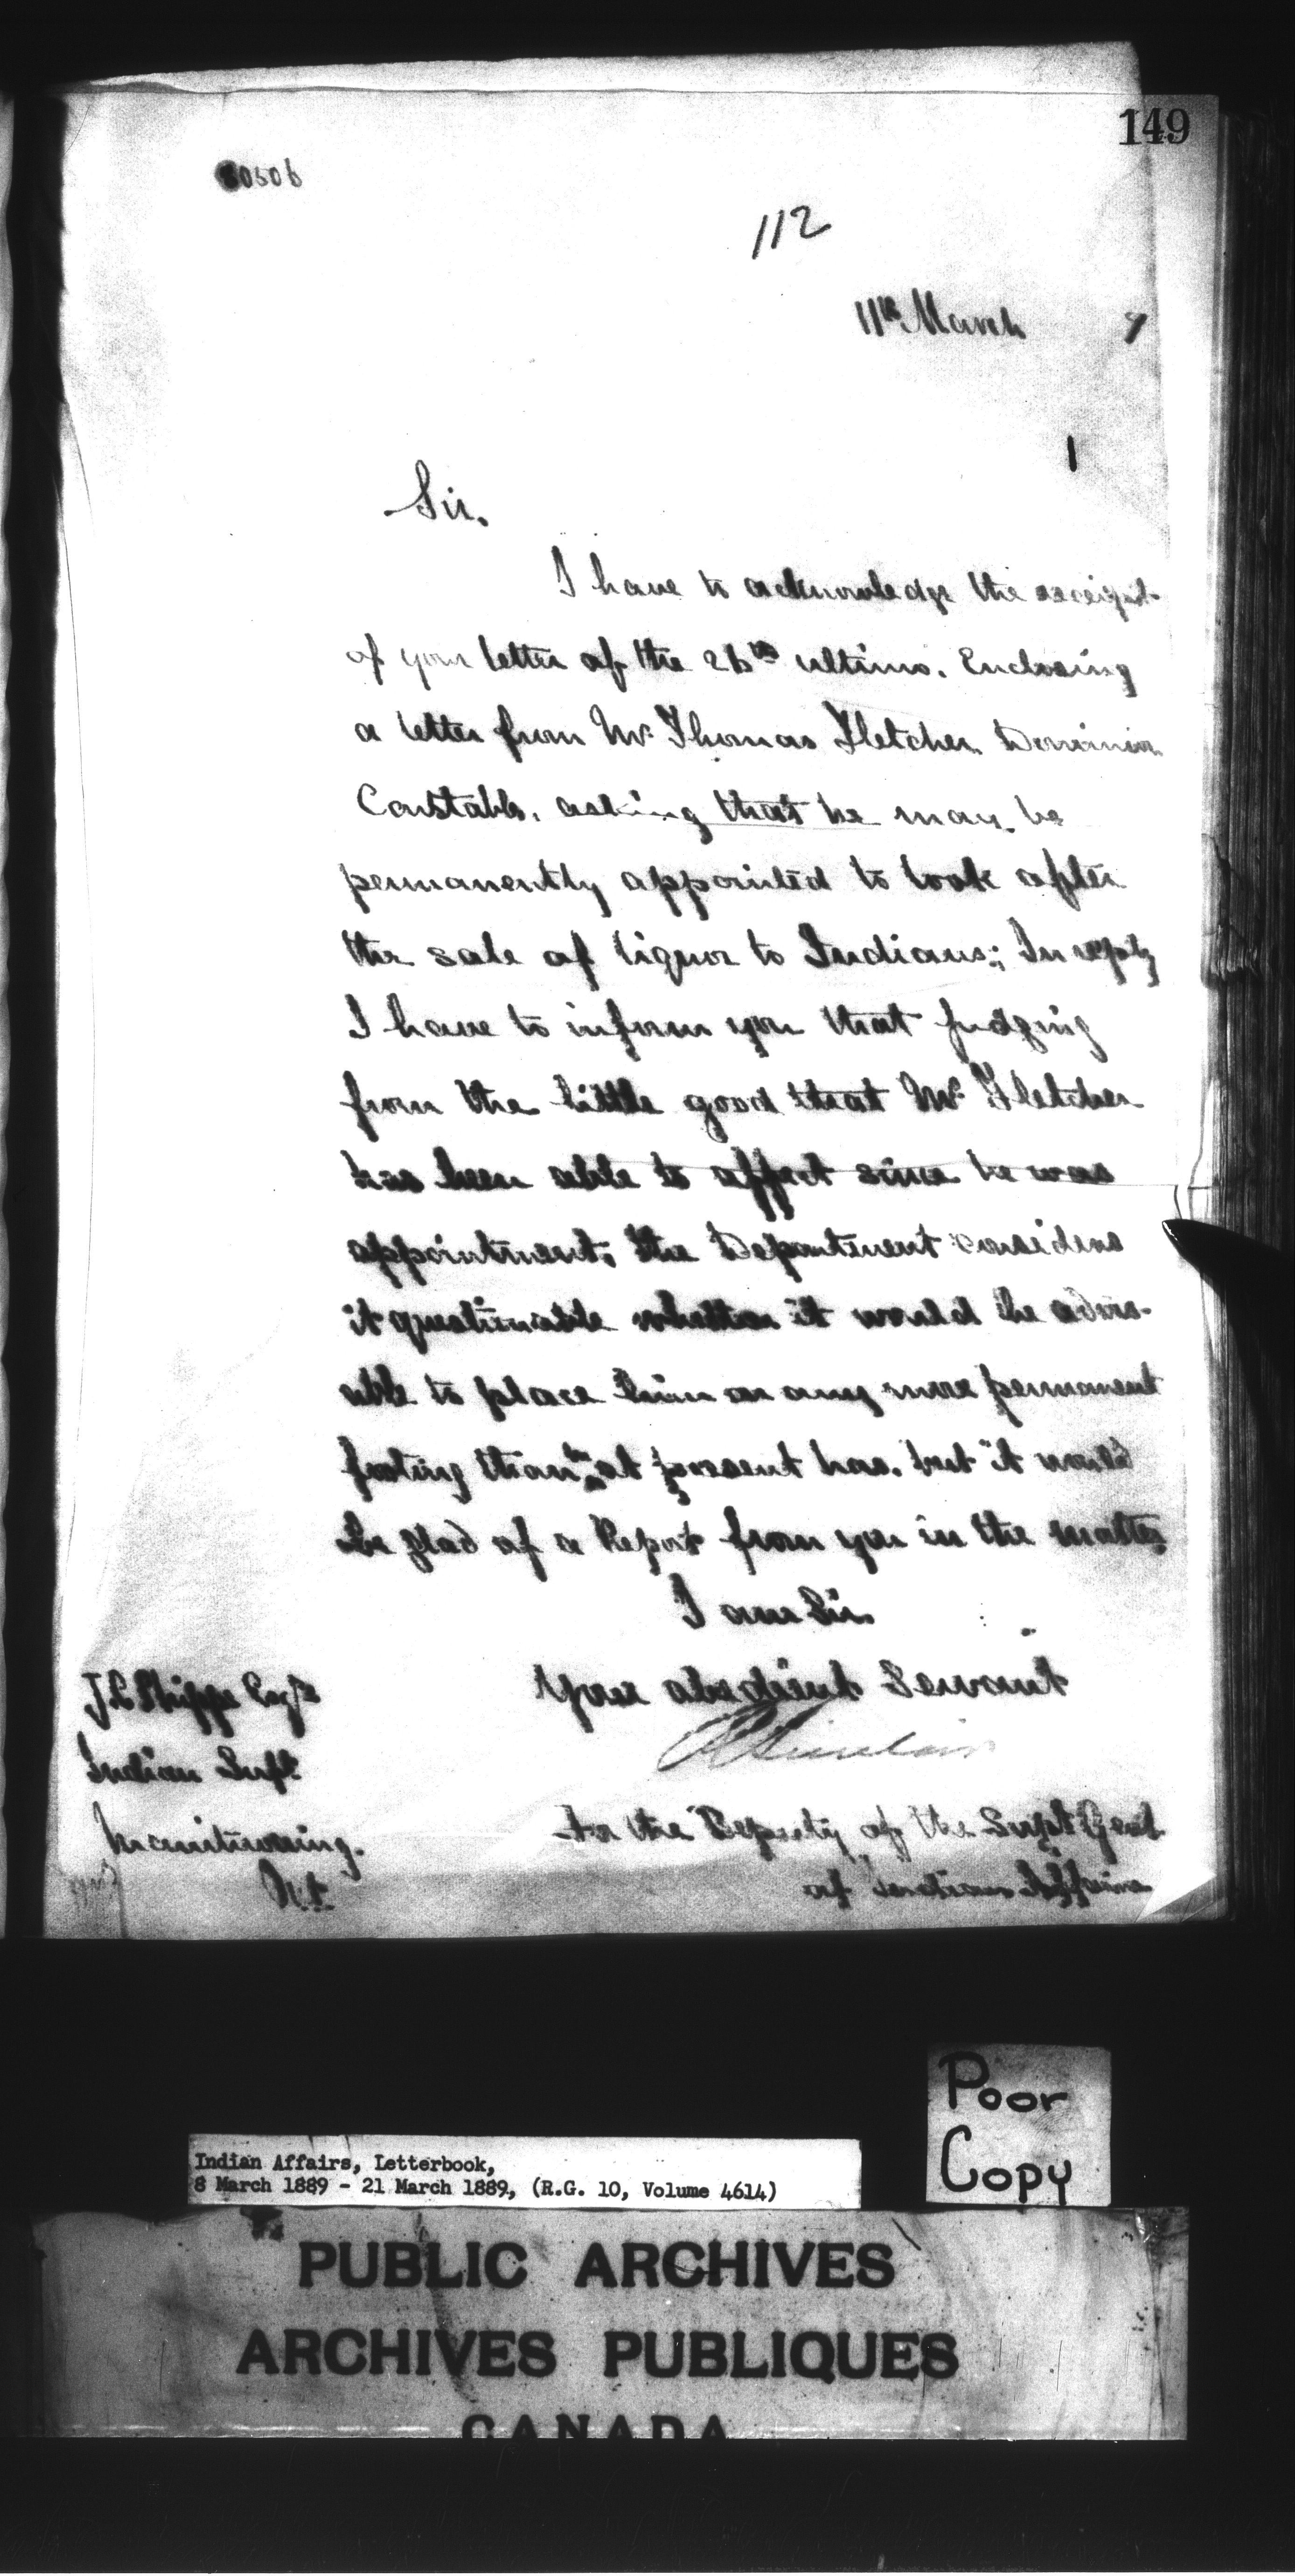 149
112
11th March 9
1
Sir,
I have to acknowledge the receipt
of your letter of the 26th ultimo, Enclosing
a letter from Mr Thomas Fletcher Dominion
Constable, asking that he may be
permanently appointed to look after
the sale of liquor to Indians; In reply
I have to inform you that judging
from the little good that Mr Fletcher
has been able to affect since he was
appointment, the Department considers
it questionable whether it would be advis-
able to place him on any more permanent
footing than he at present has, but it would
be glad of a Report from you in the matter
I am Sir,
Your obedient Servant
R Sinclair
For the Deputy of the Supt Genl
of Indian Affairs
J.C. Phipps Esqre
Indian Supt
Manitowaning.
Ont.
Poor
Copy
Indian Affairs, Letterbook,
8 March 1889 - 21 March 1889, (R.G. 10, Volume 4614)
PUBLIC ARCHIVES
ARCHIVES PUBLIQUES
CANADA